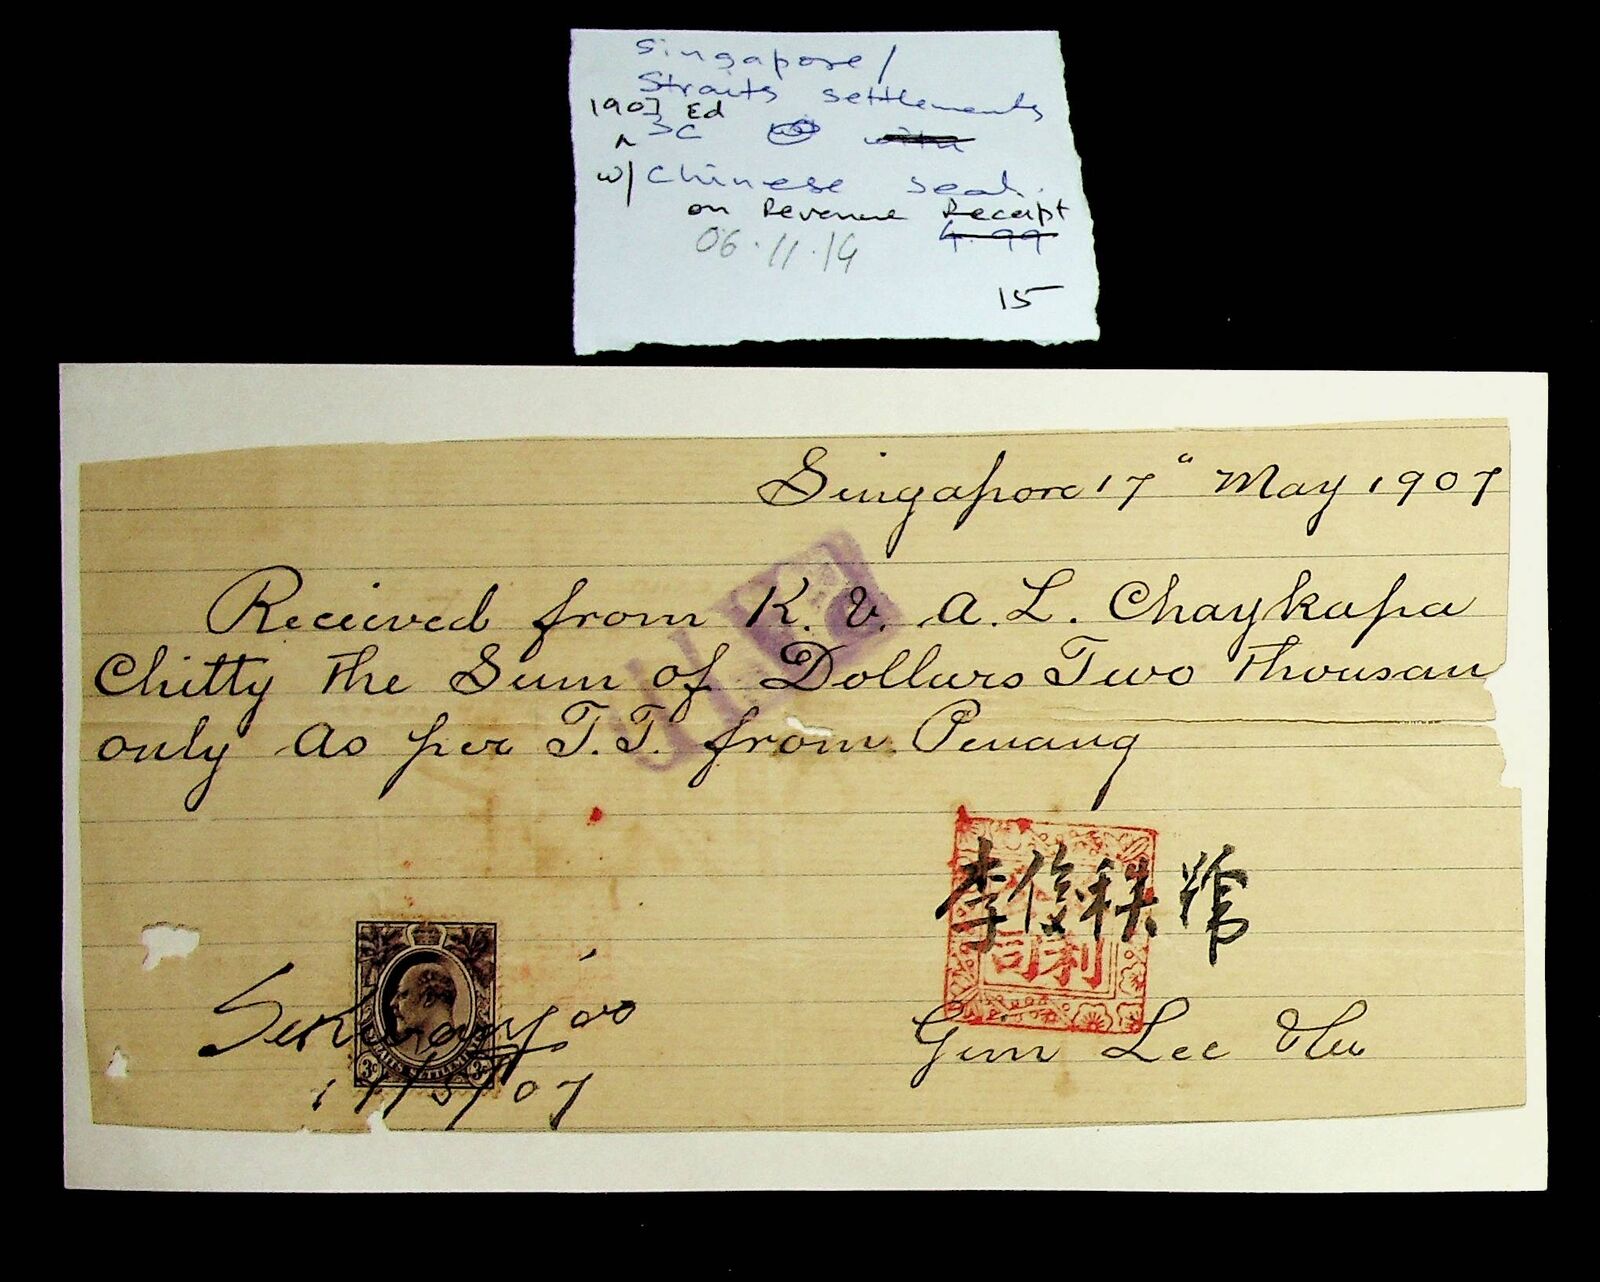 Singapore/
Straits settlements
1907 Ed
^ 3c
w/ Chinese seal.
on Revenue Receipt
4.99
06.11.14
15
Singapore 17" May 1907
Receieved from K. V. A. L. Chaykapa
Chitty the Sum of Dollars Two Thousan
only as per T.T. from Penang
李俊秩
司利
3c 3c
17/5/07
Gim Lee